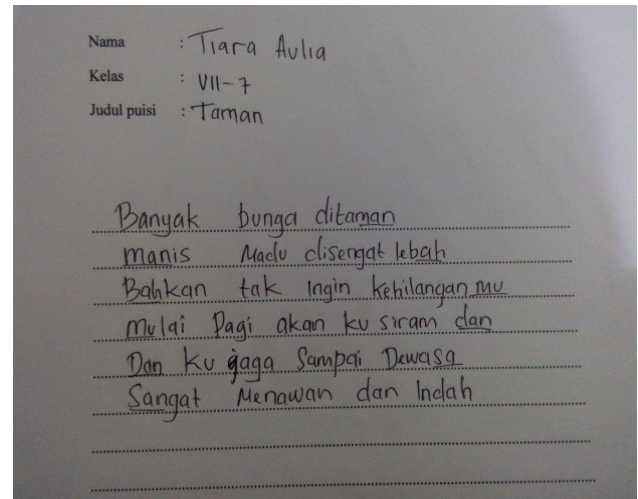 Nama : Tiara Aulia
Kelas : VII-7
Judul puisi : Taman
Banyak bunga ditaman
manis Madu disengat lebah
Bahkan tak Ingin Kehilangan mu
mulai Pagi akan ku siram dan
Dan Ku jaga Sampai Dewasa
Sangat Menawan dan Indah